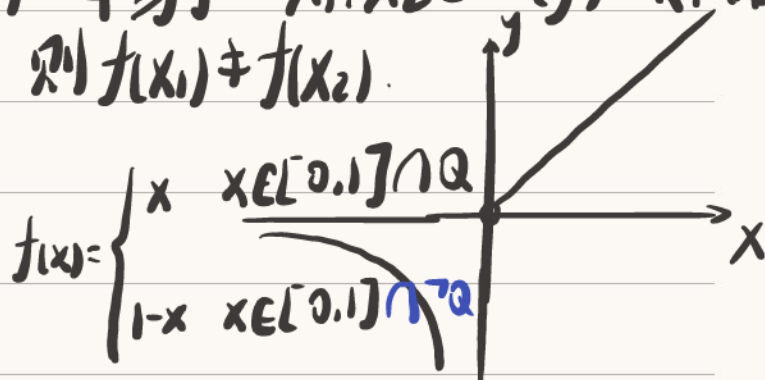 则 f(x₁) ≠ f(x₂).
y
f(x)= { x x∈[0,1]∩Q
1-x x∈[0,1]∩¬Q
x